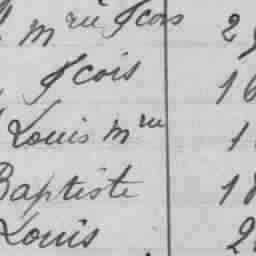 mrie fcois 2
fcois 16
Louis mrie 1
Baptiste 18
Louis 2